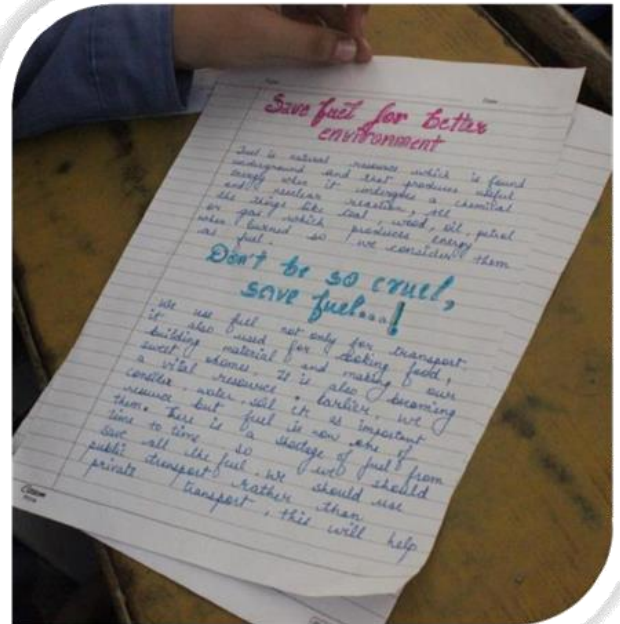 Save fuel for better
environment
Fuel is natural resource which is found
underground and that produces useful
energy when it undergoes a chemical
and nuclear reaction, all
the things like coal, wood, oil, petrol
or gas which produces energy
when burned so we consider them
as fuel.
Don't be so cruel,
save fuel...!
We use fuel not only for transport.
it also used for cooking food,
building material and making our
sweet homes. It is also becoming
a vital resource. Earlier, we
consider, water, soil etc as important
resource but fuel is now one of
them. There is a shortage of fuel from
time to time so we should
save all the fuel. We should use
public transport rather than
private transport, this will help
Classmate